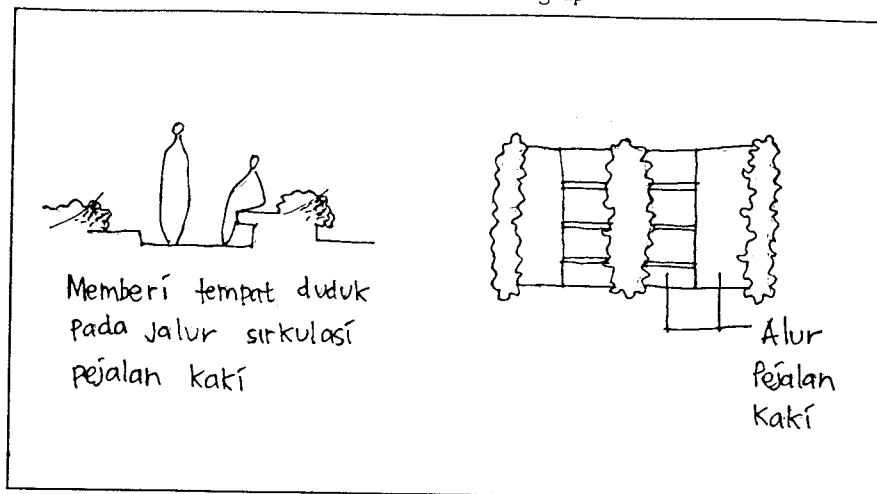 Memberi tempat duduk
pada jalur sirkulasi
pejalan kaki
Alur
Pejalan
Kaki